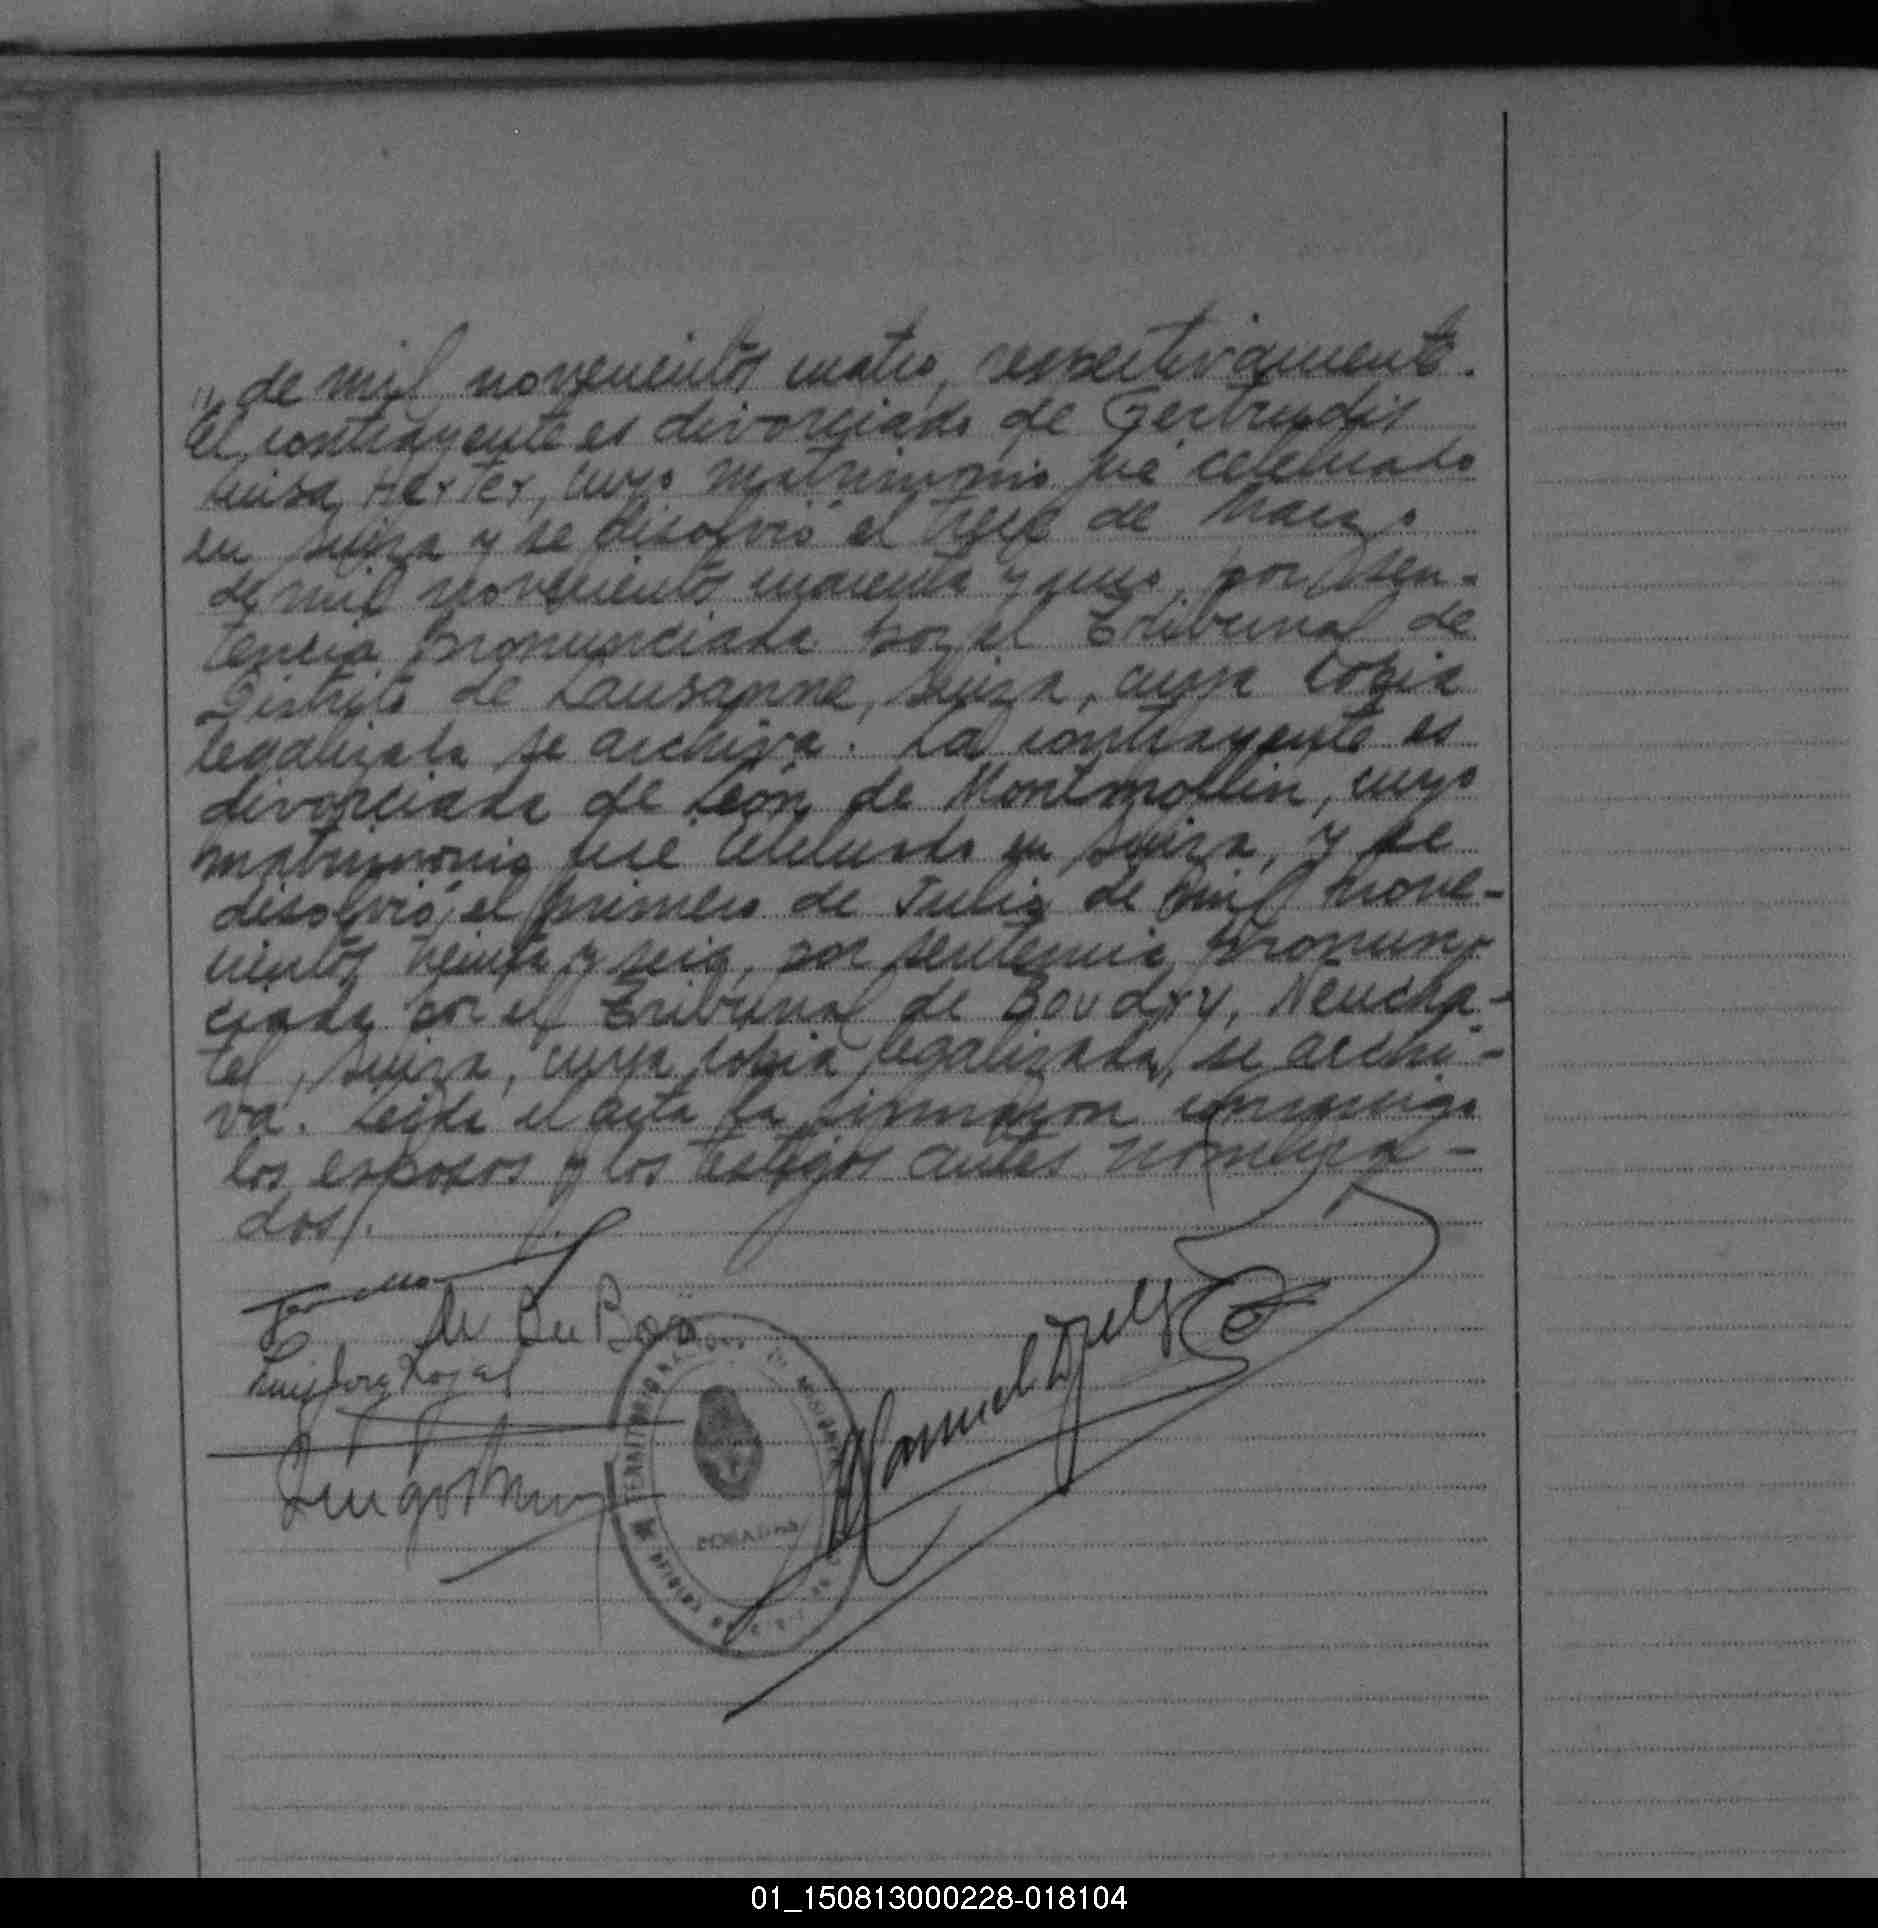 " de mil novecientos cuatro, respectivamente.
El contrayente es divorciado de Gertrudis
Luisa Herter, cuyo matrimonio fué celebrado
en Suiza y se disolvió el trece de Marzo
de mil novecientos cuarenta y uno, por sen-
tencia pronunciada por el Tribunal de
Distrito de Lausanne, Suiza, cuya copia
legalizada se archiva. La contrayente es
divorciada de León de Montmollin, cuyo
matrimonio fué celebrado en Suiza, y se
disolvió el primero de Julio de mil nove-
cientos treinta y seis, por sentencia pronun-
ciada por el Tribunal de Boudry, Neucha-
tel, Suiza, cuya copia legalizada, se archi-
va. Leída el acta la firmaron conmigo
los esposos y los testigos antes nombra-
dos.
M Du Bois
TERRITORIO NACIONAL DE MISIONES
POSADAS
Manuel
01_150813000228-018104